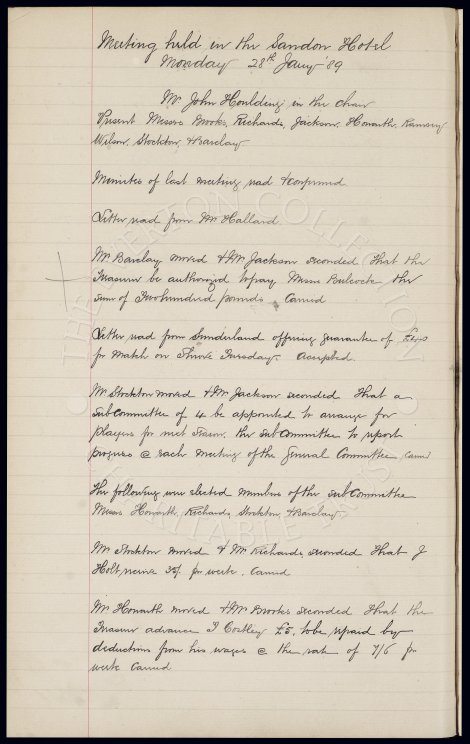 Meeting held in the Sandon Hotel
Monday 28th Jany '89
Mr John Houlding in the chair
Present Messrs Brooks, Richards, Jackson, Howarth, Ramsay
Wilson, Stockton, & Barclay
Minutes of last meeting read & confirmed
Letter read from Mr Hallard
Mr Barclay moved & Mr Jackson seconded that the
Treasurer be authorized to pay Messrs Bulcock the
sum of Two hundred pounds Carried
Letter read from Sunderland offering guarantee of
for match on Shrove Tuesday. Accepted
Mr Stockton moved & Mr Jackson seconded that a
Sub Committee of 4 be appointed to arrange for
players for next Season. the Sub Committee to report
progress @ each meeting of the General Committee. Carried
The following were elected members of the Sub Committee
Messrs Howarth, Richards, Stockton, & Barclay.
Mr Stockton moved & Mr Richards, seconded that J
Holt, receive per week. Carried
Mr Howarth moved & Mr Brooks seconded that the
Treasurer advance J Costley £5, to be repaid by
deductions from his wages @ the rate of 7/6 per
week Carried
THE EVERTON COLLECTION
CHARITABLE TRUST